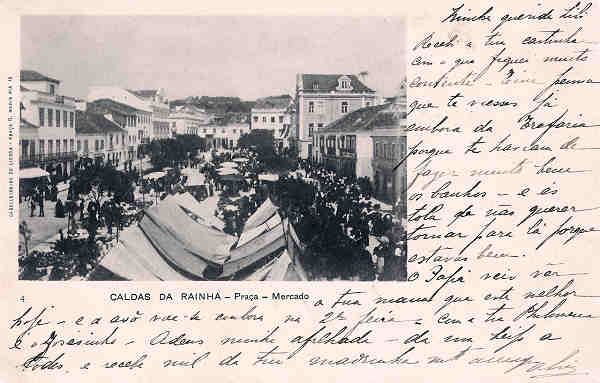 Minha querida Lili
Recebi a tua cartinha
com o que fiquei muito
contente - Tive pena
que te viesses já
embora da Trafaria
porque te haviam de
fazer muito bem
os banhos - e és
tola de não querer
tornar para lá porque
estavas bem.
O Papá veio vêr
4
CALDAS DA RAINHA - Praça - Mercado
a tua mamã que está melhor
hoje - e a avó vae-se embora na 2ª feira - com a tia Philomena
e o - Adeus minha afilhada - da um beijo a
todos, e recebe mil da tua madrinha mto amiga